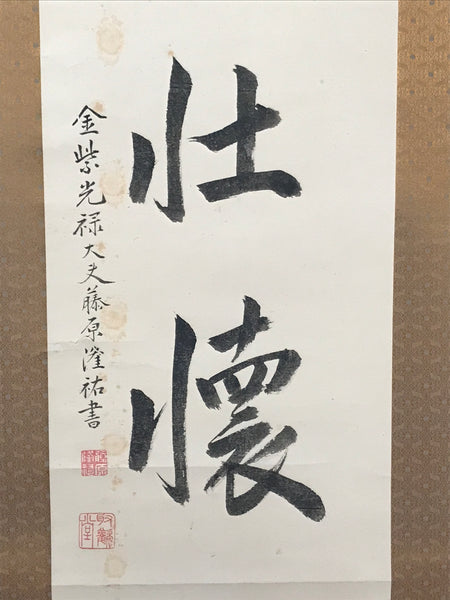 壮懐
金紫光禄大夫藤原隆祐書